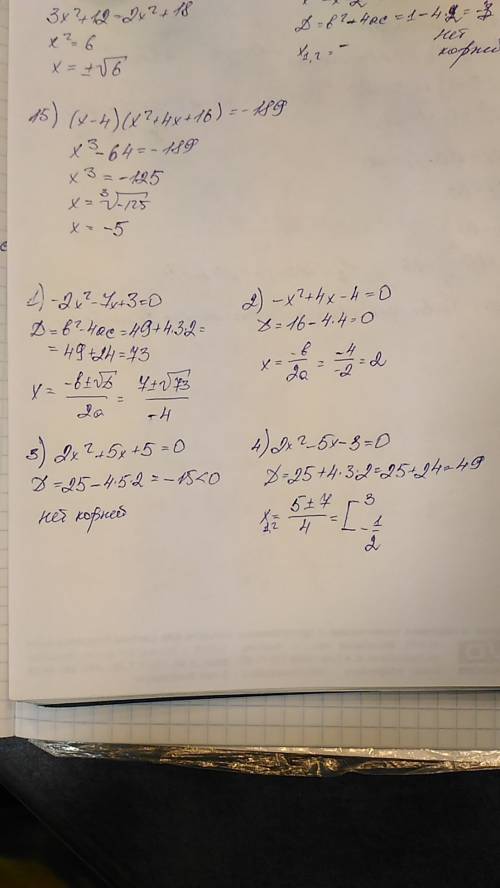 3x²+12=2x²+18
x²=6
x=±√6
D=b²-4ac=1-4·2=-7
x₁,₂=-
нет
корней
15) (x-4)(x²+4x+16)=-189
x³-64=-189
x³=-125
x=³√-125
x=-5
1) -2x²-7x+3=0
D=b²-4ac=49+4·3·2=
=49+24=73
x=(-b±√b)/2a=(7±√73)/-4
2) -x²+4x-4=0
D=16-4·4=0
x=-b/2a=-4/-2=2
3) 2x²+5x+5=0
D=25-4·5·2=-15<0
нет корней
4) 2x²-5x-3=0
D=25+4·3·2=25+24=49
x₁,₂=(5±7)/4=[3
-1/2